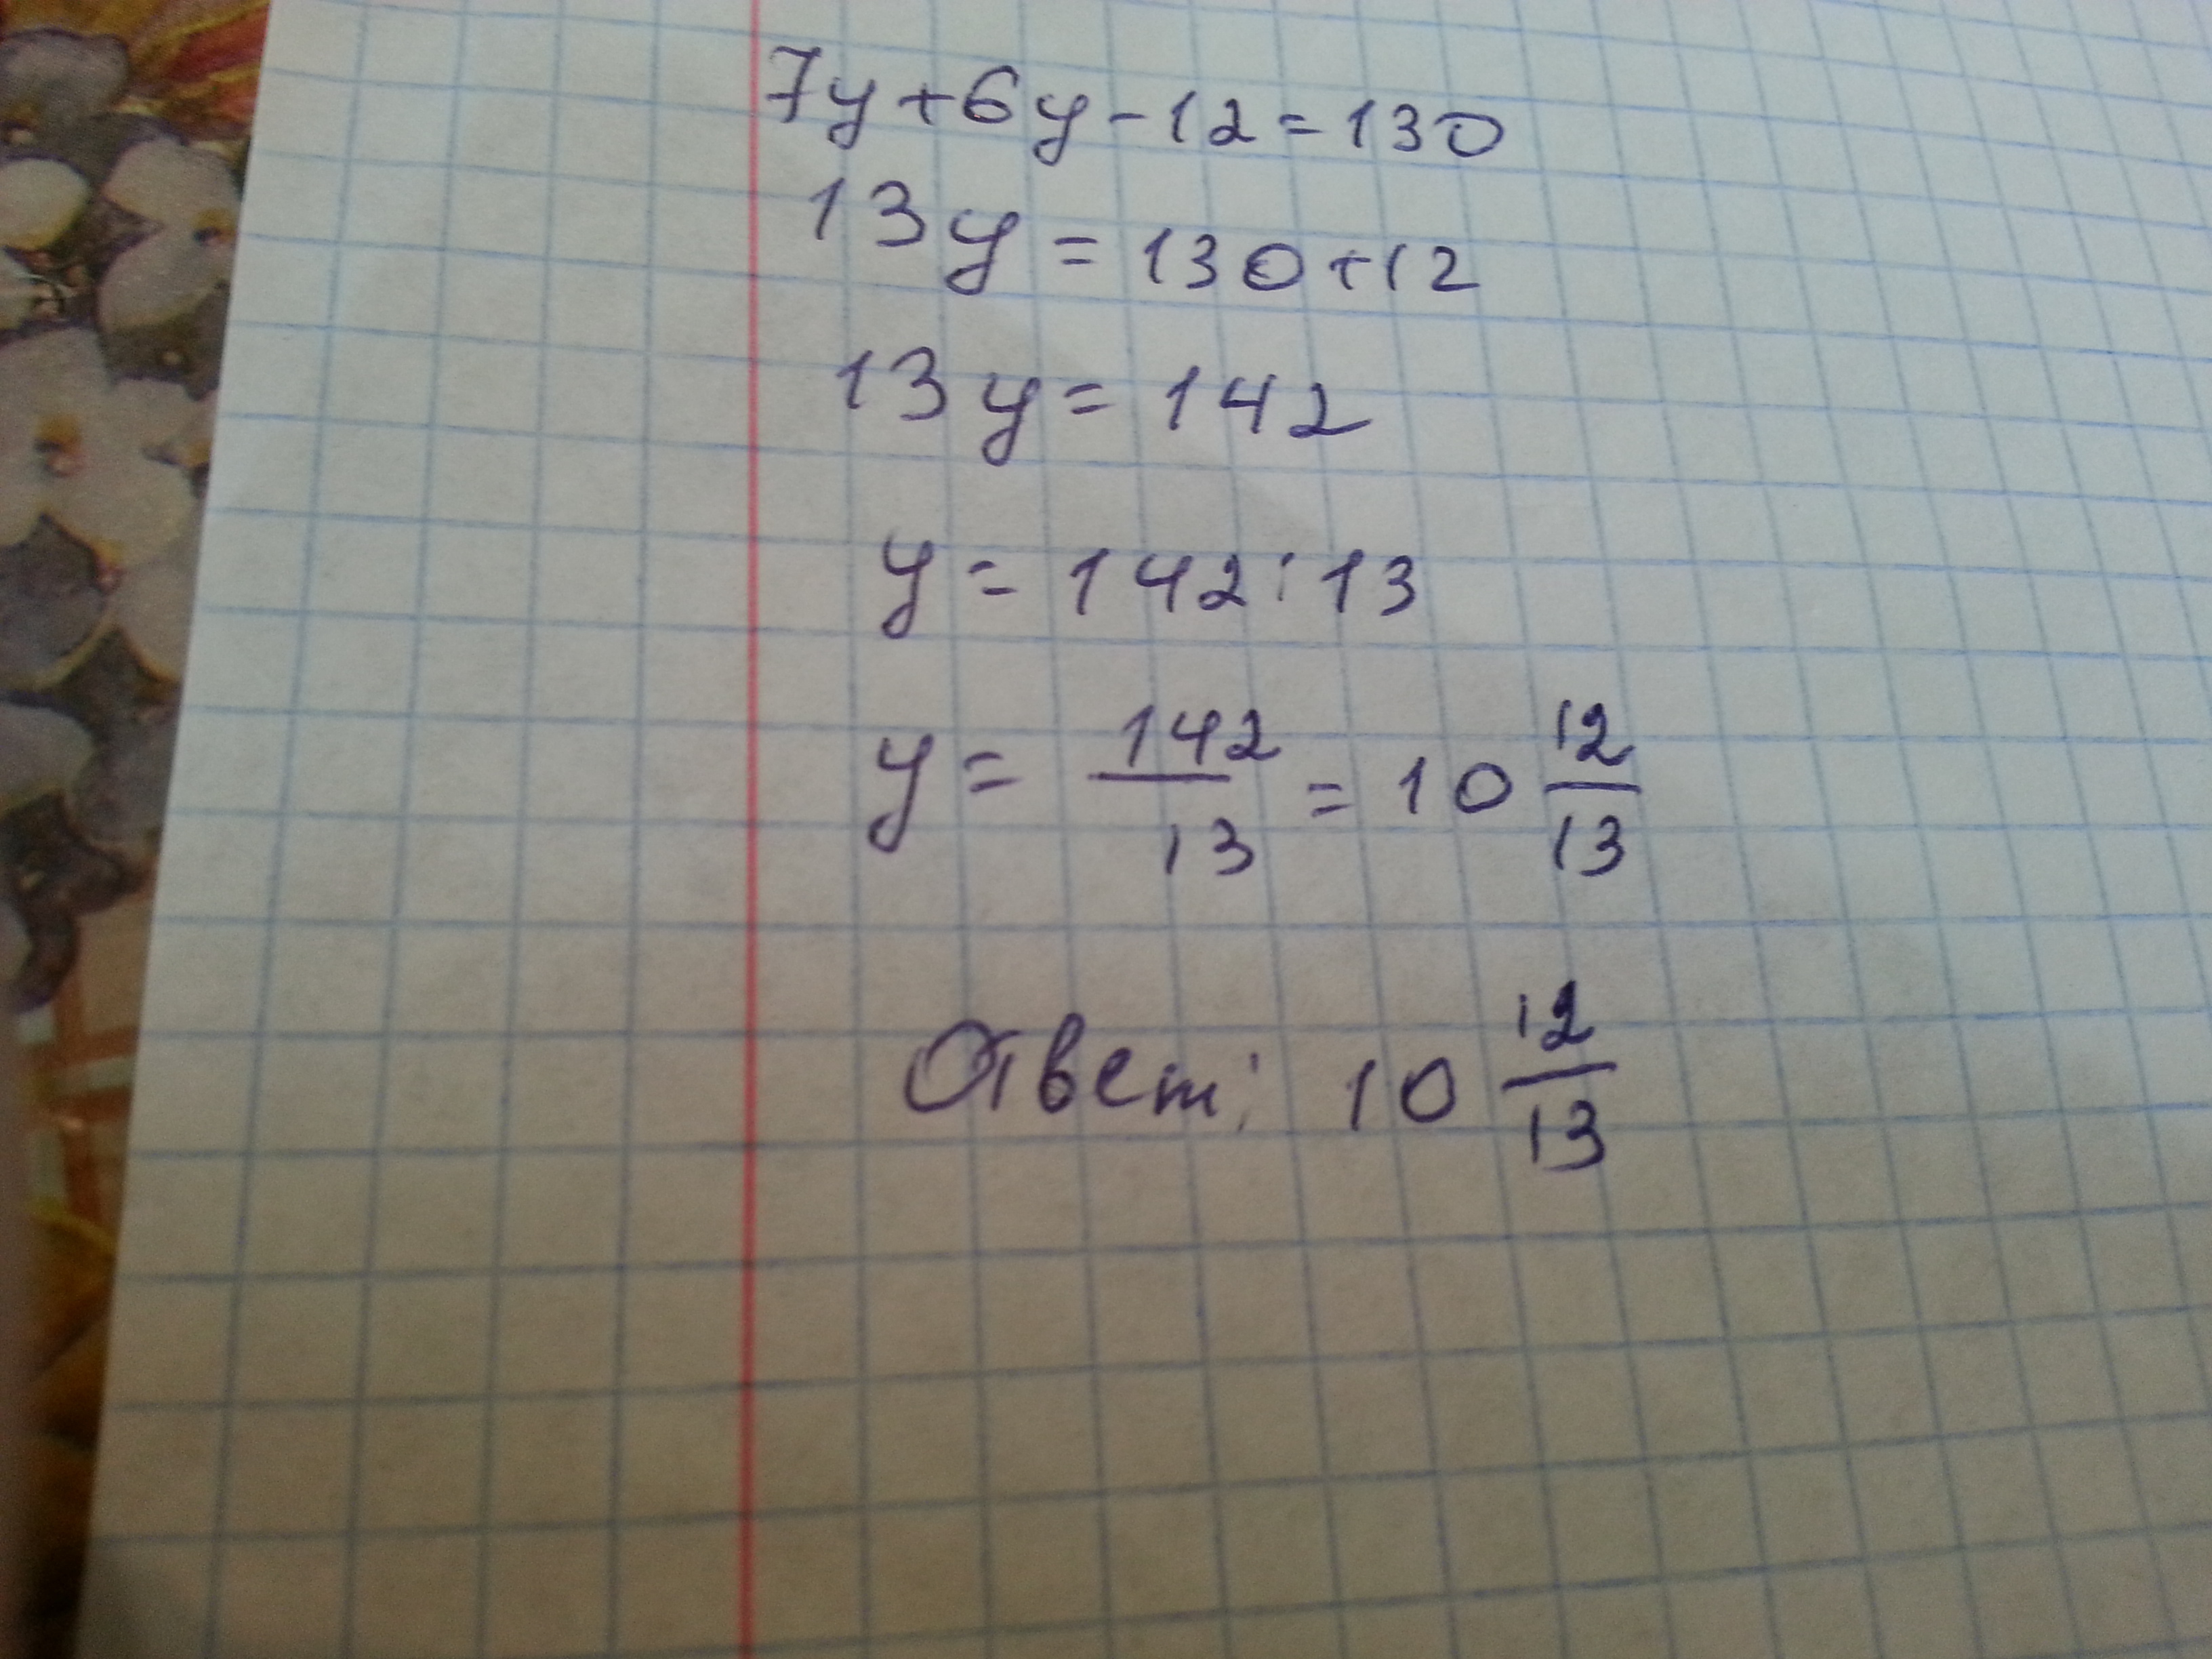 7y+6y-12=130
13y=130+12
13y=142
y=142:13
y=142/13=10 12/13
Ответ: 10 12/13